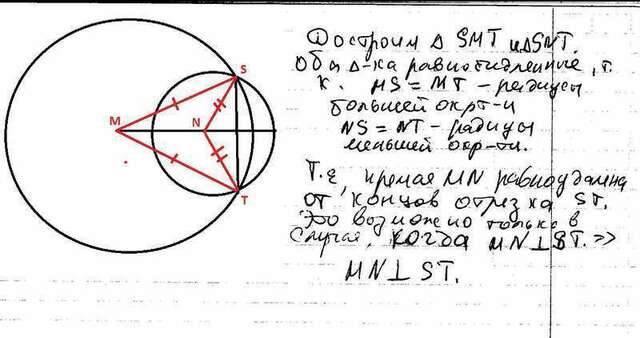 S
M
N
T
① Достроим Δ SMT и ΔSNT.
Оба Δ-ка равнобедренные, т.
к. MS = MT - радиусы
большей окр-ти
NS = NT - радиусы
меньшей окр-ти.
Т.е, прямая MN равноудалена
от концов отрезка ST.
Это возможно только в
случае, когда MN⊥ST. =>
MN⊥ ST.